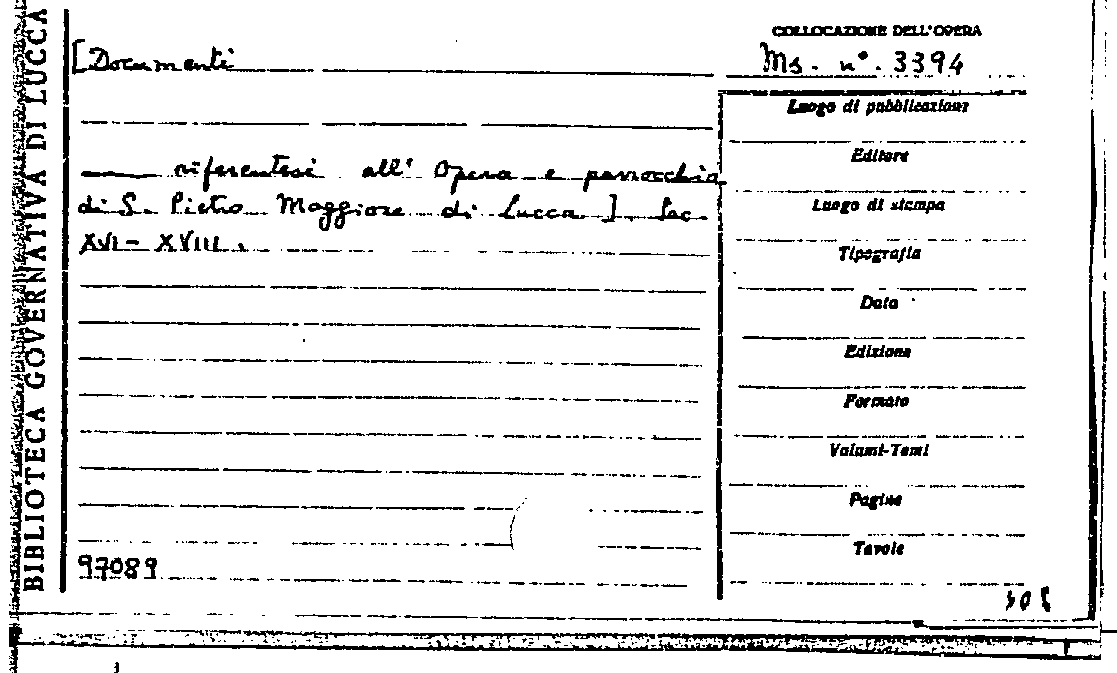 BIBLIOTECA GOVERNATIVA DI LUCCA
COLLOCAZIONE DELL'OPERA
Ms. n°. 3394
[Documenti
riferentesi all' Opera e parrocchia
di S. Pietro Maggiore di Lucca ] Sec.
XVI - XVIII.
97089
Luogo di pubblicazione
Editore
Luogo di stampa
Tipografia
Data
Edizione
Formato
Volumi-Tomi
Pagine
Tavole